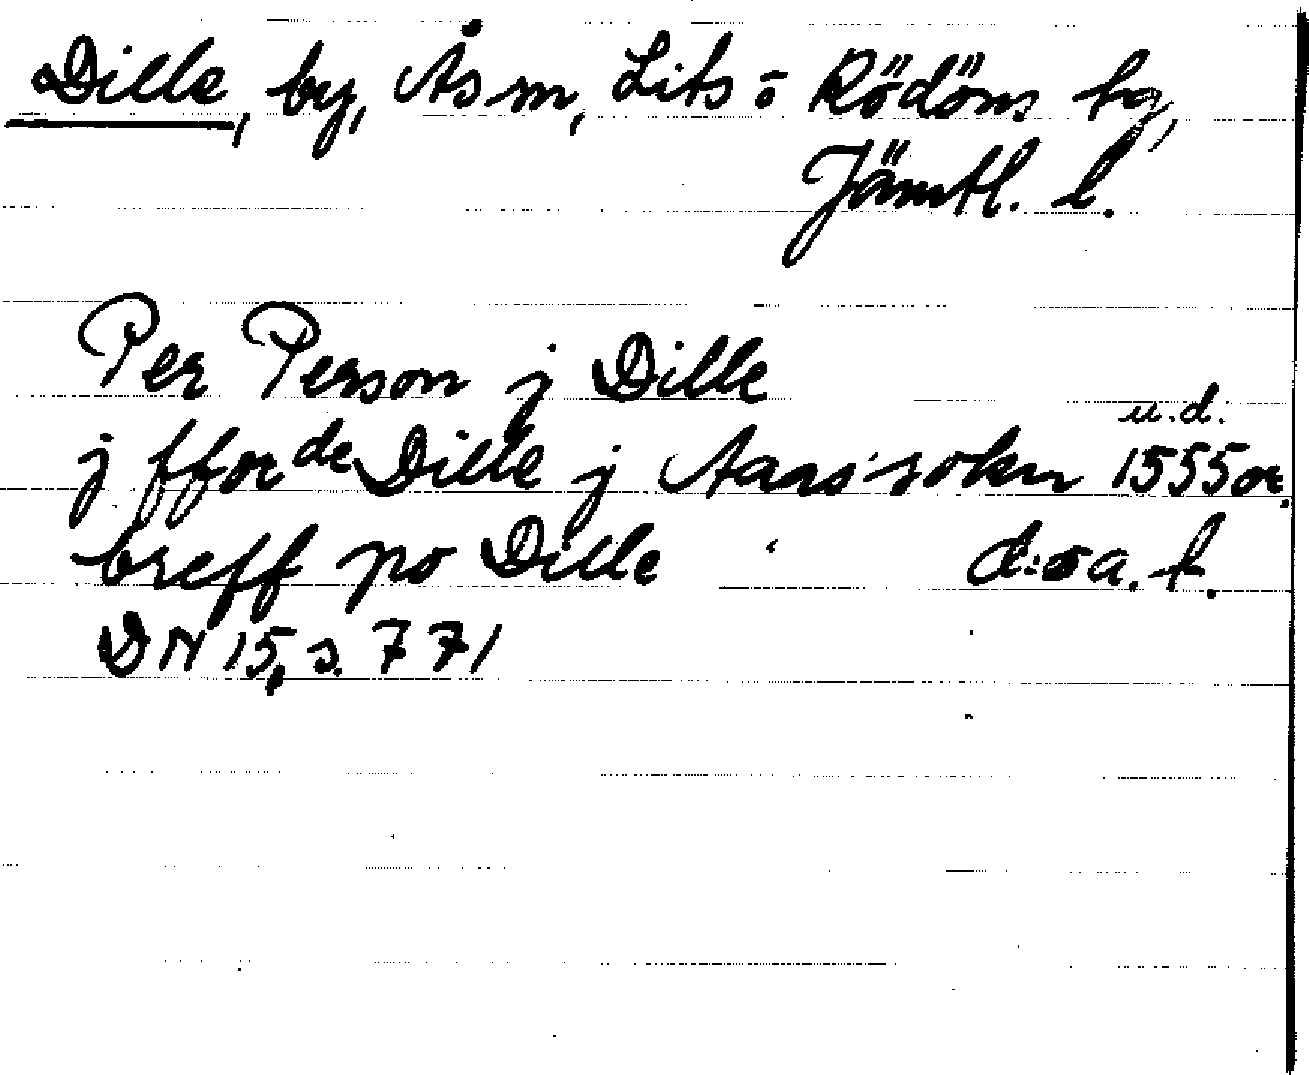 Dille, by, Ås sn, Lits o Rödöns hg,
Jämtl. l.
Per Person j Dille
u.d.
j fforde Dille j Aaas sokn 1555 or.
breff po Dille d:o a. l.
DN 15, s. 771